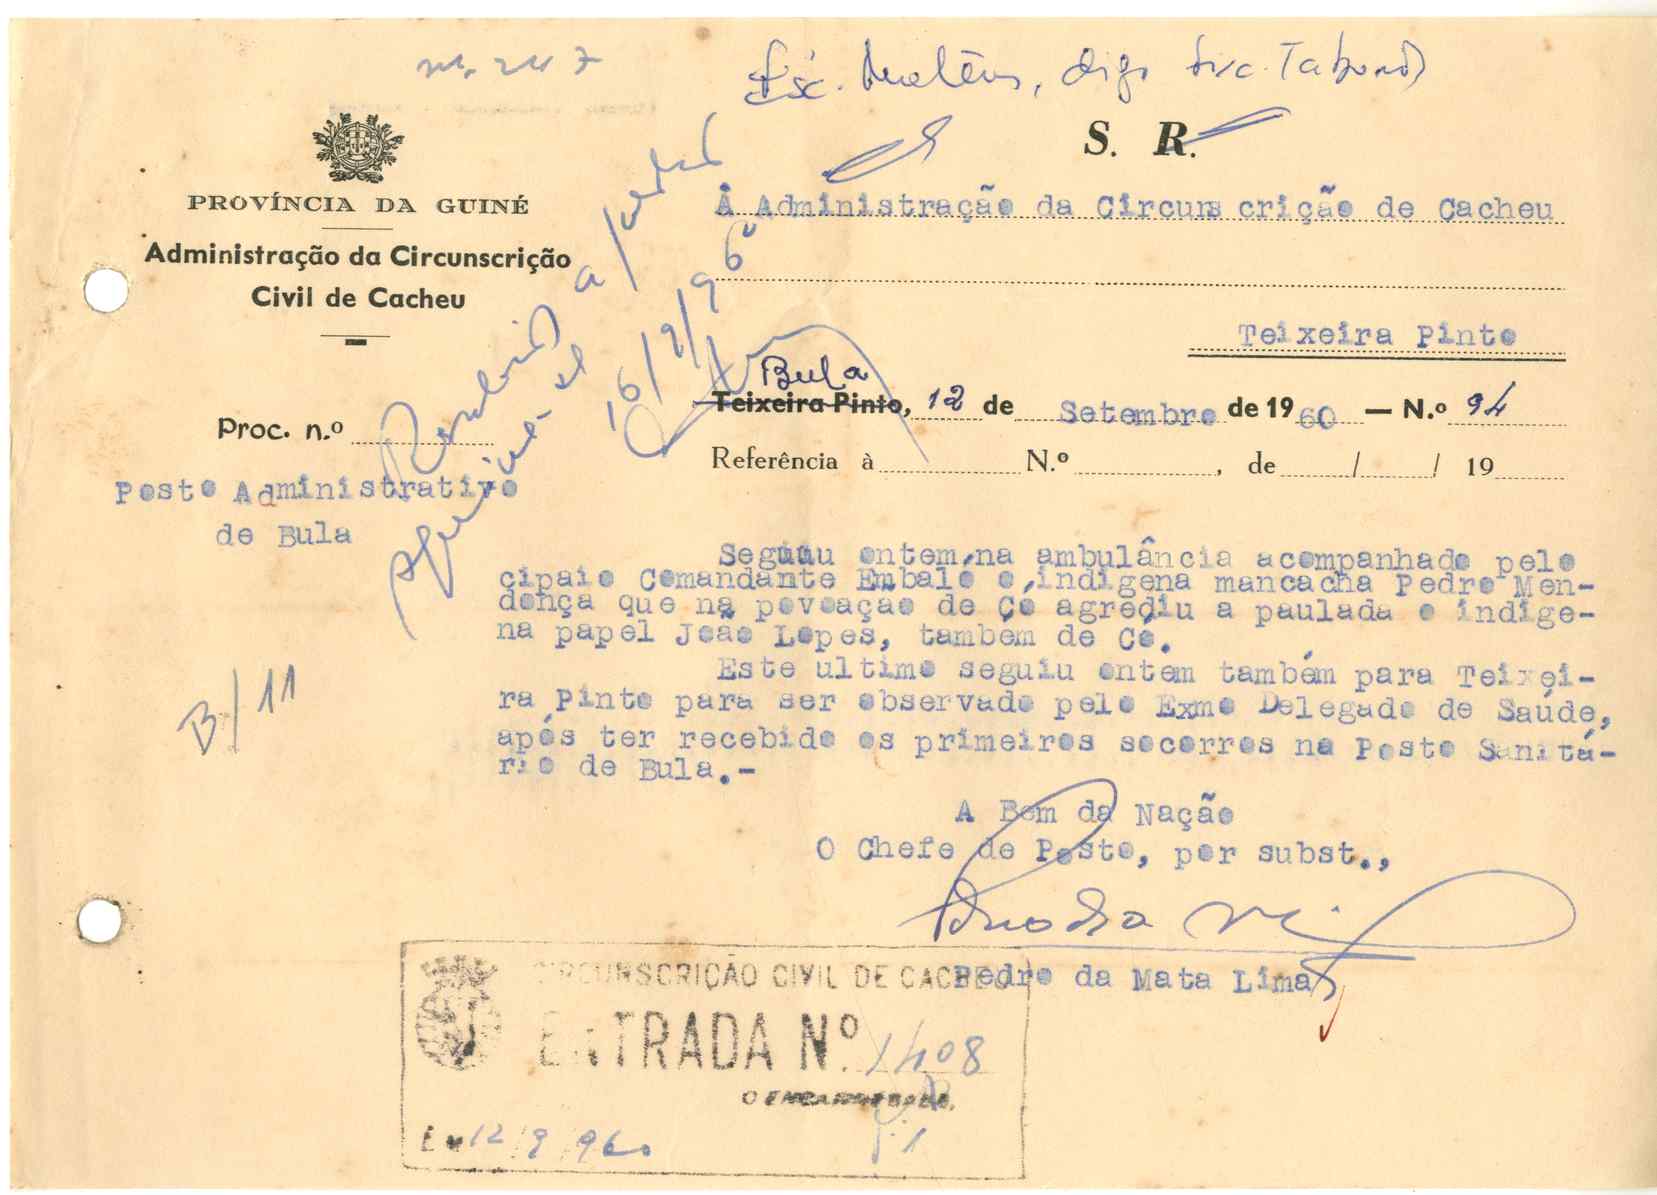 S. R.
PROVÍNCIA DA GUINÉ
Administração da Circunscrição
Civil de Cacheu
À Administração da Circuns crição de Cacheu
Teixeira Pinto
Bula
Teixeira Pinto, 12 de Setembro de 1960 — N.º 94
Proc. n.º
Referência à N.º , de / / 19
16/9/960
Posto Administrativo
de Bula
Seguiu ontem,na ambulância acompanhado pelo
cipaio Comandante Embaló o indígena mancacha Pedro Men-
donça que na povoação de Có agrediu a paulada o indige-
na papel João Lopes, tambem de Có.
Este ultimo seguiu ontem também para Teixei-
ra Pinto para ser observado pelo Exmo Delegado de Saúde,
após ter recebido os primeiros socorros no Posto Sanitá-
rio de Bula.-
B/11
A Bem da Nação
O Chefe de Posto, por subst.,
Pedro da Mata Lima
CIRCUNSCRIÇÃO CIVIL DE CACHEU
ENTRADA N.º 1408
O ENCARREGADO,
Em 12/9/960